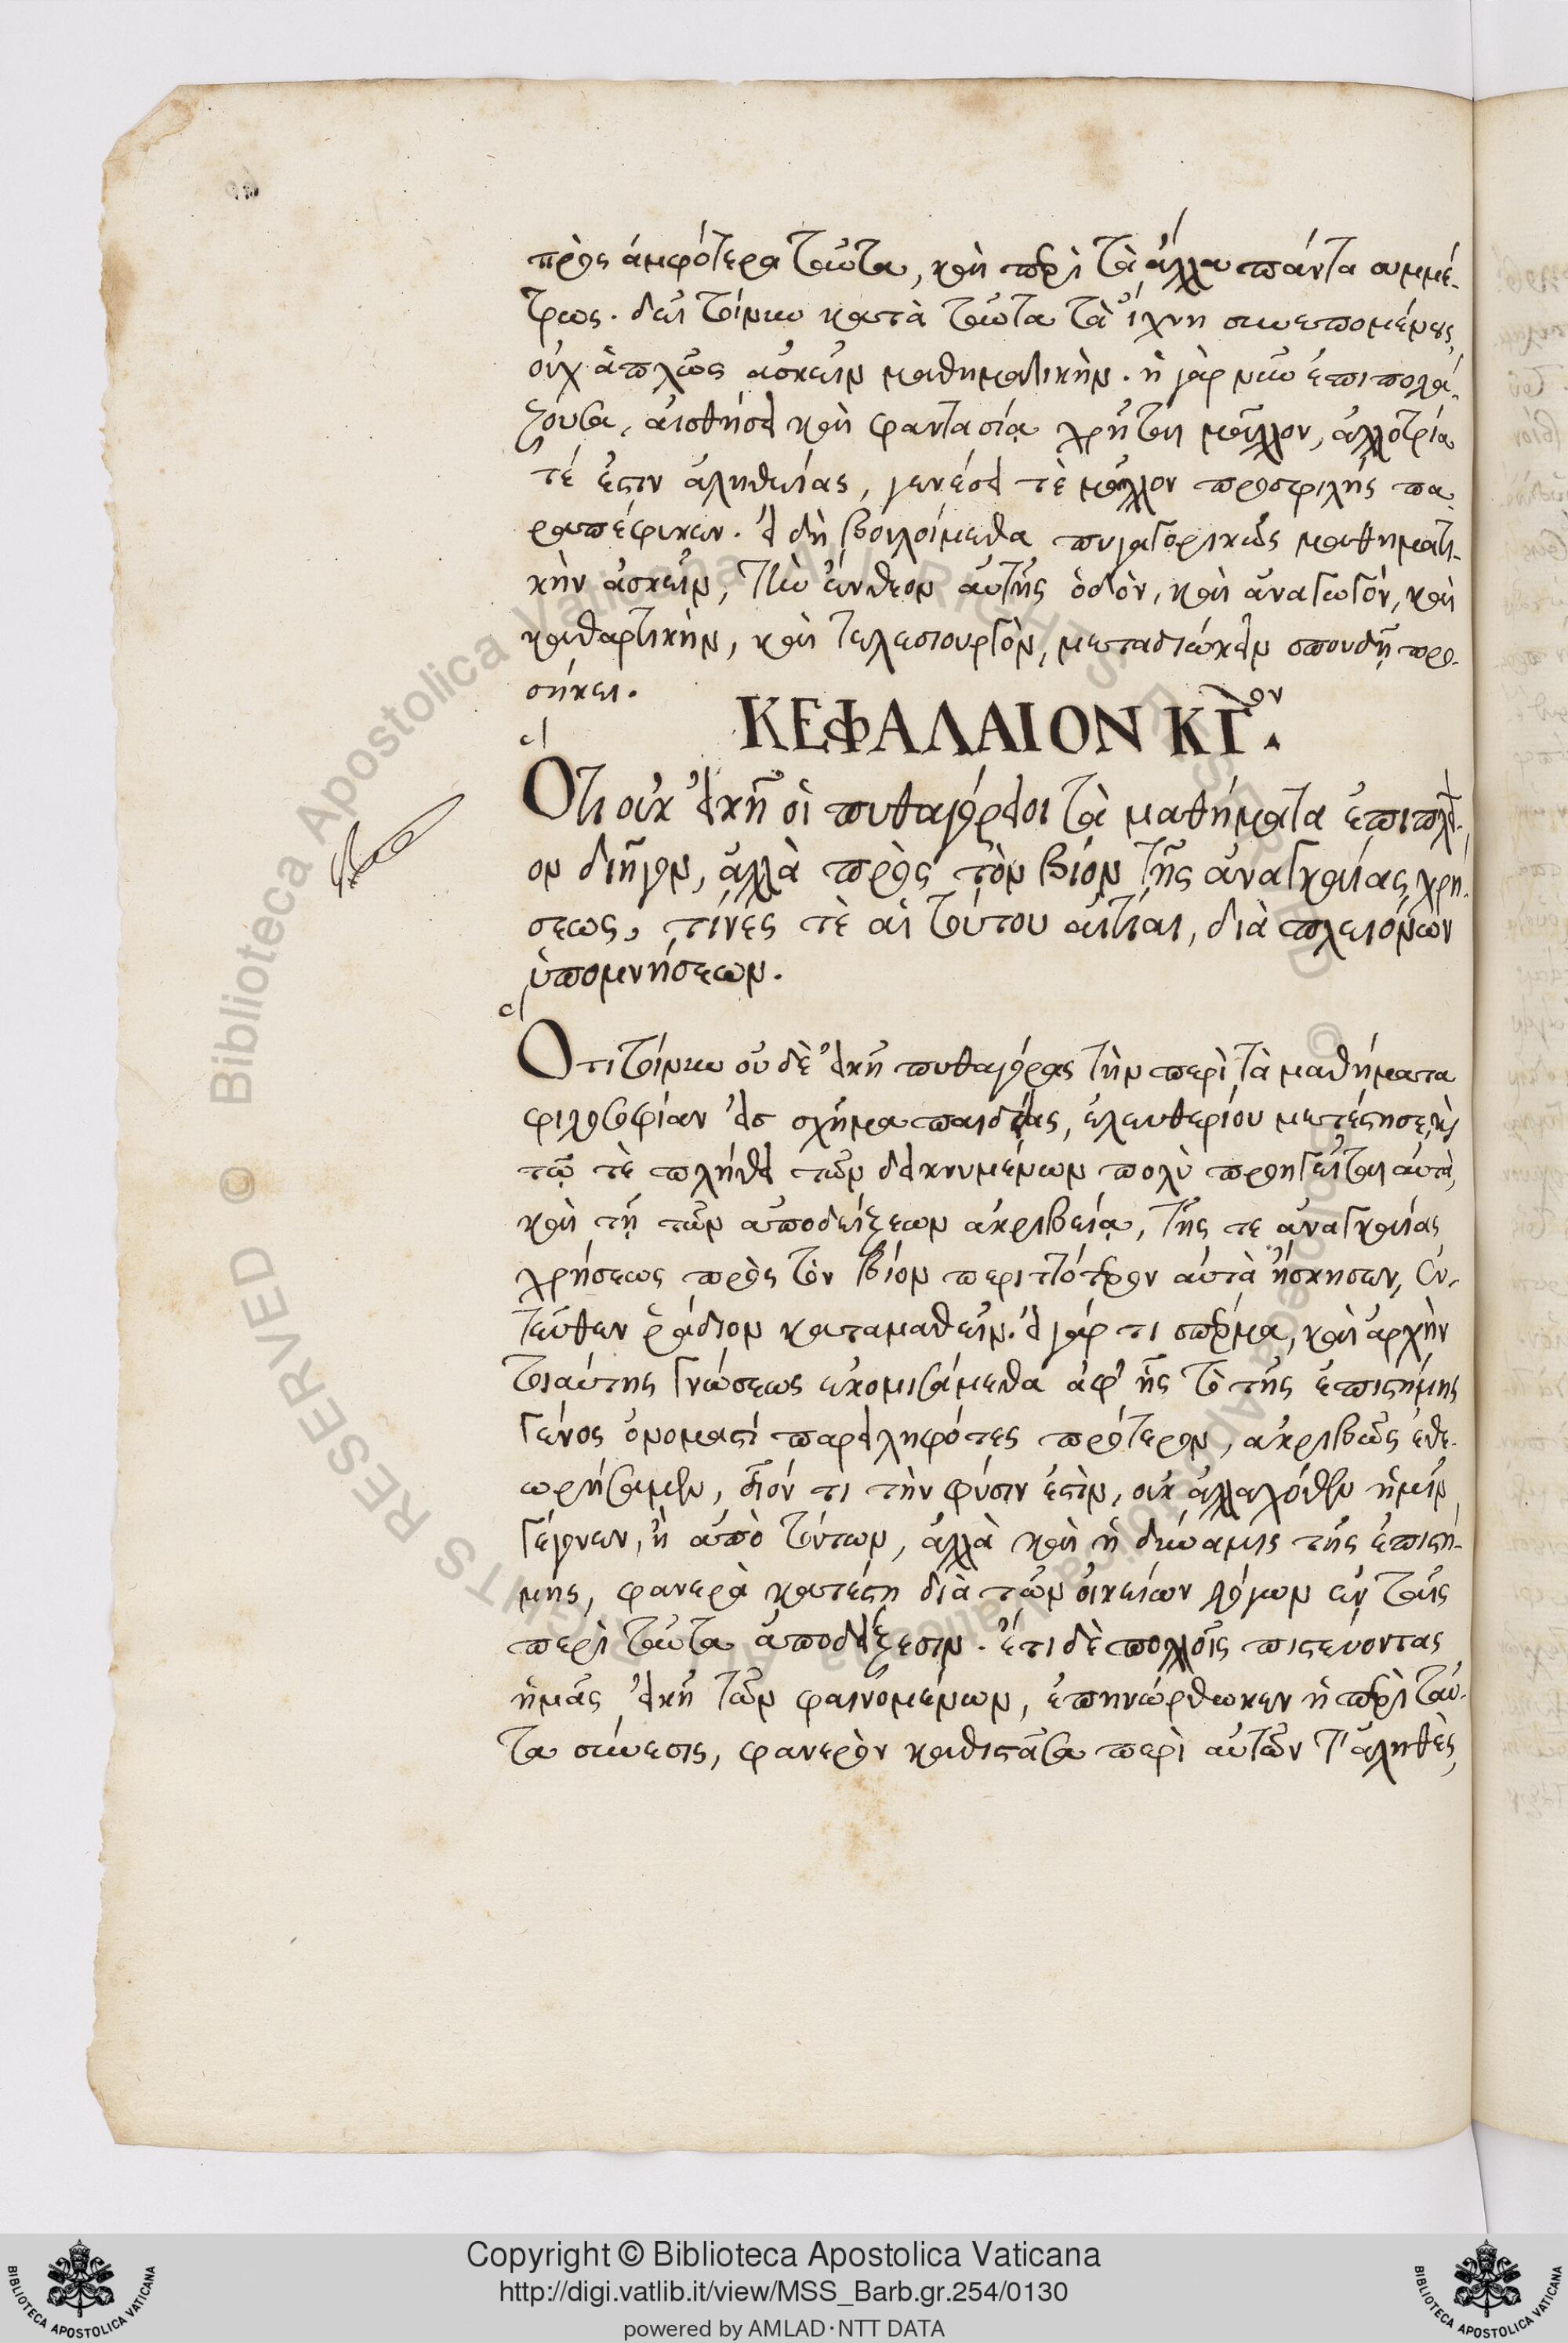 πρὸς ἀμφότερα ταῦτα, καὶ περὶ τὰ ἄλλα πάντα συμμέ-
τρως. δεῖ τοίνυν κατὰ ταῦτα τὰ ἴχνη συνεπομένους,
οὐχ ἁπλῶς ἀσκεῖν μαθηματικήν. ἡ γὰρ νῦν ἐπιπολά-
ζουσα, αἰσθήσει καὶ φαντασίᾳ χρῆται μᾶλλον, ἀλλοτρία
τέ ἐστιν ἀληθείας, γενέσει τὲ μᾶλλον προσφιλὴς πα
ραπέφυκεν. εἰ δὴ βουλοίμεθα πυγαγορικῶς μαθηματι-
κὴν ἀσκεῖν, τὴν ἔνθεον αὐτῆς ὁδὸν, καὶ ἀναγωγόν, καὶ
καθαρτικὴν, καὶ τελεσιουργὸν, μεταδιώκειν σπουδῇ προ-
σήκει.
ΚΕΦΑΛΑΙΟΝ ΚΓ̀ον.
Ὅτι οὐκ εἰκῆ οἱ πυθαγόρειοι τὰ μαθήματα ἐπιπλεῖ-
ον διῆγον, ἀλλὰ πρὸς τὸν βίον τῆς ἀναγκαίας χρή-
σεως, τίνές τὲ αἱ τούτου αἰτίαι, διὰ πλειόνων
ὑπομνήσεων.
Ὅτι τοίνυν οὐδὲ εἰκῆ πυθαγόρας τὴν περὶ τὰ μαθήματα
φιλοσοφίαν εἰς σχῆμα παιδείας, ἐλευθερίου μετέστησε, καὶ
τῷ τὲ πλήθει τῶν δεικνυμένων πολὺ προηγεῖται αὐτὰ,
καὶ τῇ τῶν ἀποδείξεων ἀκριβείᾳ, τῆς τε ἀναγκαίας
χρήσεως πρὸς τὸν βίον περιττότερον αὐτὰ ἤσκησεν, ἐν-
τεῦθεν ῥάδιον καταμαθεῖν. εἰ γάρ τι σπέρμα, καὶ ἀρχὴν
τοιαύτης γνώσεως ἐκομισάμεθα ἀφ' ἧς τὸ τῆς ἐπιστήμης
γένος ὀνομαστί παρειληφότες πρότερον, ἀκριβῶς ἐθε-
ωρήσαμεν, οἷόν τι τὴν φύσιν ἐστὶν, οὐκ ἀλλαχόθεν ἡμῖν
γέγονεν, ἢ ἀπὸ τούτων, ἀλλὰ καὶ ἡ δύναμις τῆς ἐπιστή-
μης, φανερὰ κατέστη διὰ τῶν οἰκείων λόγων ἐν ταῖς
περὶ ταῦτα ἀποδείξεσιν. ἔτι δὲ πολλοῖς πιστεύοντας
ἡμᾶς εἰκῆ τῶν φαινομένων, ἐπηνώρθωκεν ἡ περὶ ταῦ-
τα σύνεσις, φανερὸν καθιστᾶσα περὶ αὐτῶν τ' ἀληθὲς,
Copyright © Biblioteca Apostolica Vaticana
http://digi.vatlib.it/view/MSS_Barb.gr.254/0130
powered by AMLAD·NTT DATA
BIBLIOTECA APOSTOLICA VATICANA
BIBLIOTECA APOSTOLICA VATICANA